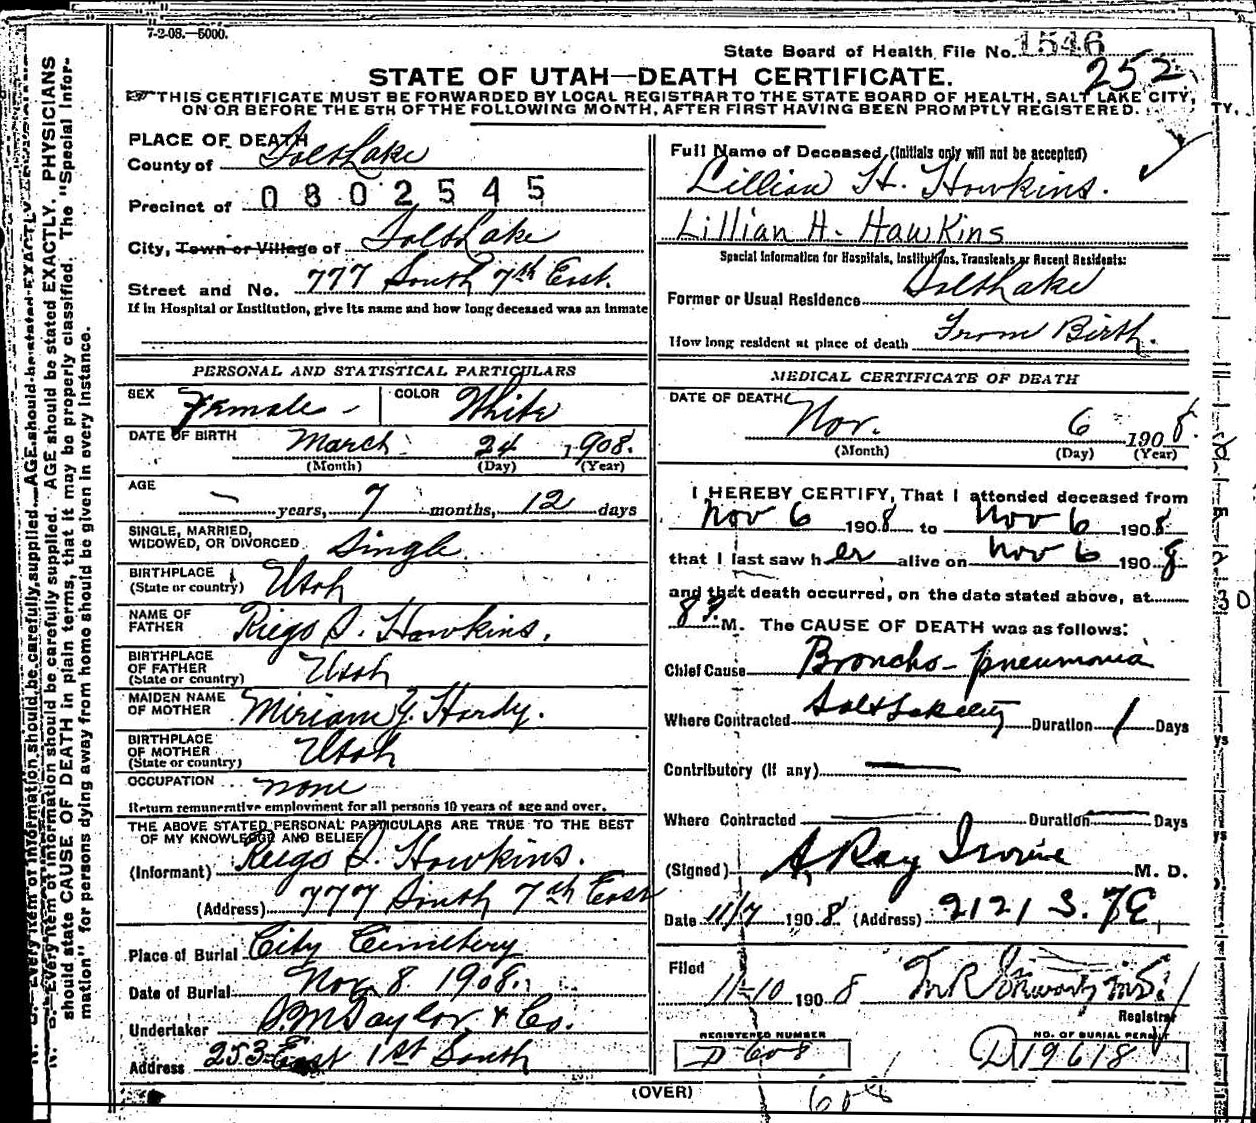 7-2-08.—5000.
State Board of Health File No. 1546
252
STATE OF UTAH—DEATH CERTIFICATE.
THIS CERTIFICATE MUST BE FORWARDED BY LOCAL REGISTRAR TO THE STATE BOARD OF HEALTH, SALT LAKE CITY,
ON OR BEFORE THE 5TH OF THE FOLLOWING MONTH, AFTER FIRST HAVING BEEN PROMPTLY REGISTERED.
TY.
PLACE OF DEATH
County of Salt Lake
Precinct of 0802545
City, Town or Village of Salt Lake
Street and No. 777 South 7th East.
If in Hospital or Institution, give its name and how long deceased was an inmate
Full Name of Deceased (Initials only will not be accepted)
Lillian H. Hawkins.
Lillian H. Hawkins
Special Information for Hospitals, Institutions, Transients or Recent Residents:
Former or Usual Residence Salt Lake
How long resident at place of death From Birth.
PERSONAL AND STATISTICAL PARTICULARS
SEX Female - COLOR White
DATE OF BIRTH March 24 1908.
(Month) (Day) (Year)
AGE
— years, 7 months, 12 days
SINGLE, MARRIED,
WIDOWED, OR DIVORCED Single
BIRTHPLACE
(State or country) Utah
NAME OF
FATHER Riego S. Hawkins.
BIRTHPLACE
OF FATHER
(State or country) Utah
MAIDEN NAME
OF MOTHER Miriam Y. Hardy.
BIRTHPLACE
OF MOTHER
(State or country) Utah
OCCUPATION none
Return remunerative employment for all persons 10 years of age and over.
THE ABOVE STATED PERSONAL PARTICULARS ARE TRUE TO THE BEST
OF MY KNOWLEDGE AND BELIEF
(Informant) Riego S. Hawkins.
(Address) 777 South 7th East
Place of Burial City Cemetery
Date of Burial Nov. 8. 1908.
Undertaker S.M. Taylor & Co.
Address 253 East 1st South
MEDICAL CERTIFICATE OF DEATH
DATE OF DEATH
Nov. 6 1908.
(Month) (Day) (Year)
I HEREBY CERTIFY, That I attended deceased from
Nov 6 1908 to Nov 6 1908
that I last saw her alive on Nov 6 1908
and that death occurred, on the date stated above, at
8 P. M. The CAUSE OF DEATH was as follows:
Chief Cause Broncho-pneumonia
Where Contracted Salt Lake City Duration 1 Days
Contributory (if any) —
Where Contracted — Duration — Days
(Signed) A. Ray Irvine M. D.
Date 11/7 1908 (Address) 2121 S. 7 E.
Filed
11-10 1908
Registrar
REGISTERED NUMBER
D 608
NO. OF BURIAL PERMIT
D19618
(OVER)
608
N. B.—Every item of information should be carefully supplied. AGE should be stated EXACTLY. PHYSICIANS
should state CAUSE OF DEATH in plain terms, that it may be properly classified. The "Special Infor-
mation" for persons dying away from home should be given in every instance.